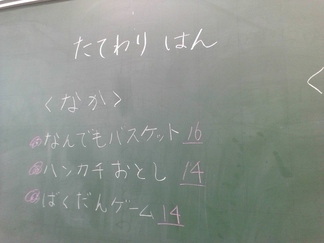 たてわり はん
<なか>
なんでもバスケット 16
ハンカチおとし 14
ばくだんゲーム 14